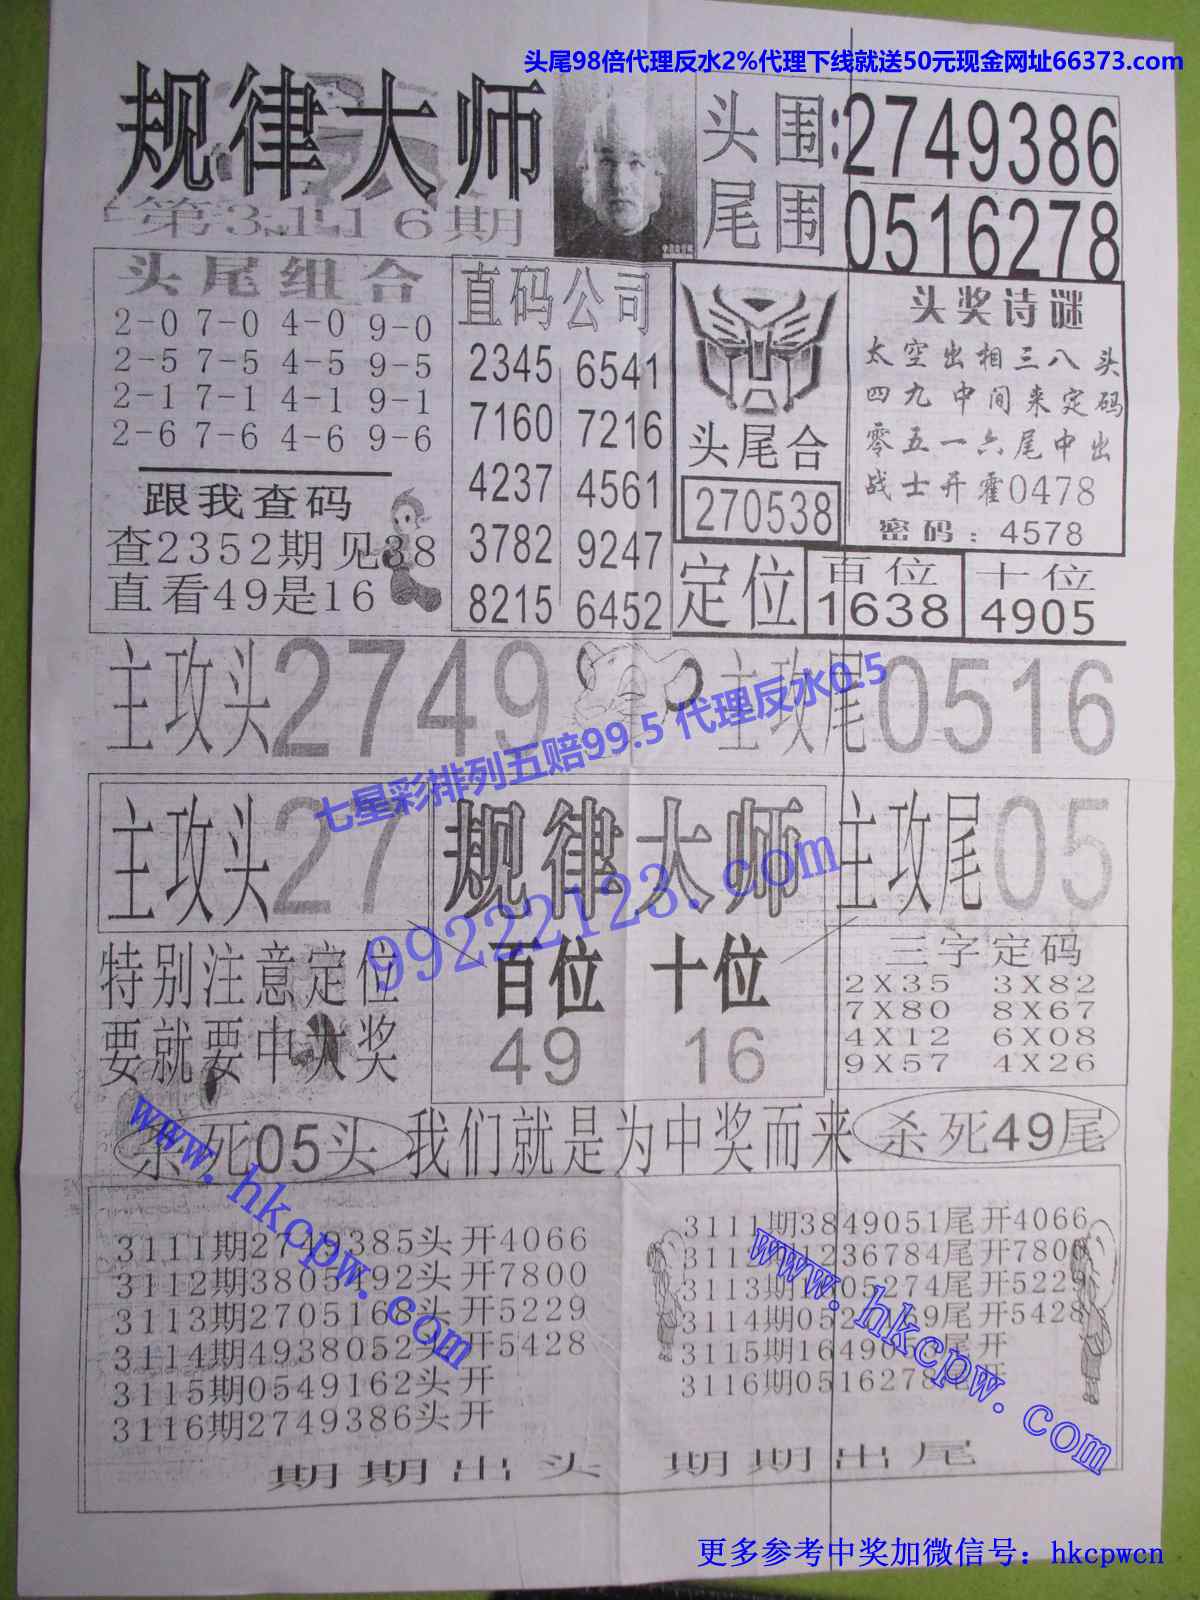 头尾98倍代理反水2%代理下线就送50元现金网址66373.com
规律大师
第3116期
头围:2749386
尾围 0516278
头尾组合
2-0 7-0 4-0 9-0
2-5 7-5 4-5 9-5
2-1 7-1 4-1 9-1
2-6 7-6 4-6 9-6
跟我查码
查2352期见38
直看49是16
直码公司
2345 6541
7160 7216
4237 4561
3782 9247
8215 6452
头尾合
270538
头奖诗谜
太空出相三八头
四九中间来定码
零五一六尾中出
战士开霍0478
密码：4578
定位
百位
1638
十位
4905
主攻头2749
主攻尾0516
七星彩排列五赔99.5 代理反水0.5
主攻头27
规律大师
主攻尾05
99222123.com
特别注意定位
要就要中大奖
百位 十位
49 16
三字定码
2X35 3X82
7X80 8X67
4X12 6X08
9X57 4X26
杀死05头
我们就是为中奖而来
杀死49尾
www.hkcpw.com
3111期2749385头开4066
3112期3805492头开7800
3113期2705168头开5229
3114期4938052头开5428
3115期0549162头开
3116期2749386头开
www.hkcpw.com
3111期3849051尾开4066
尾开5229
尾开5428
3116期0516278尾开
期期出头
期期出尾
更多参考中奖加微信号：hkcpwcn